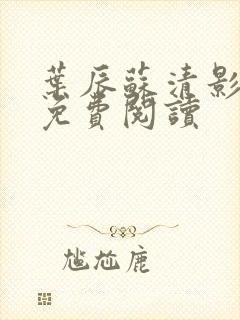 葉辰蘇清影
免費閱讀
尷尬鹿